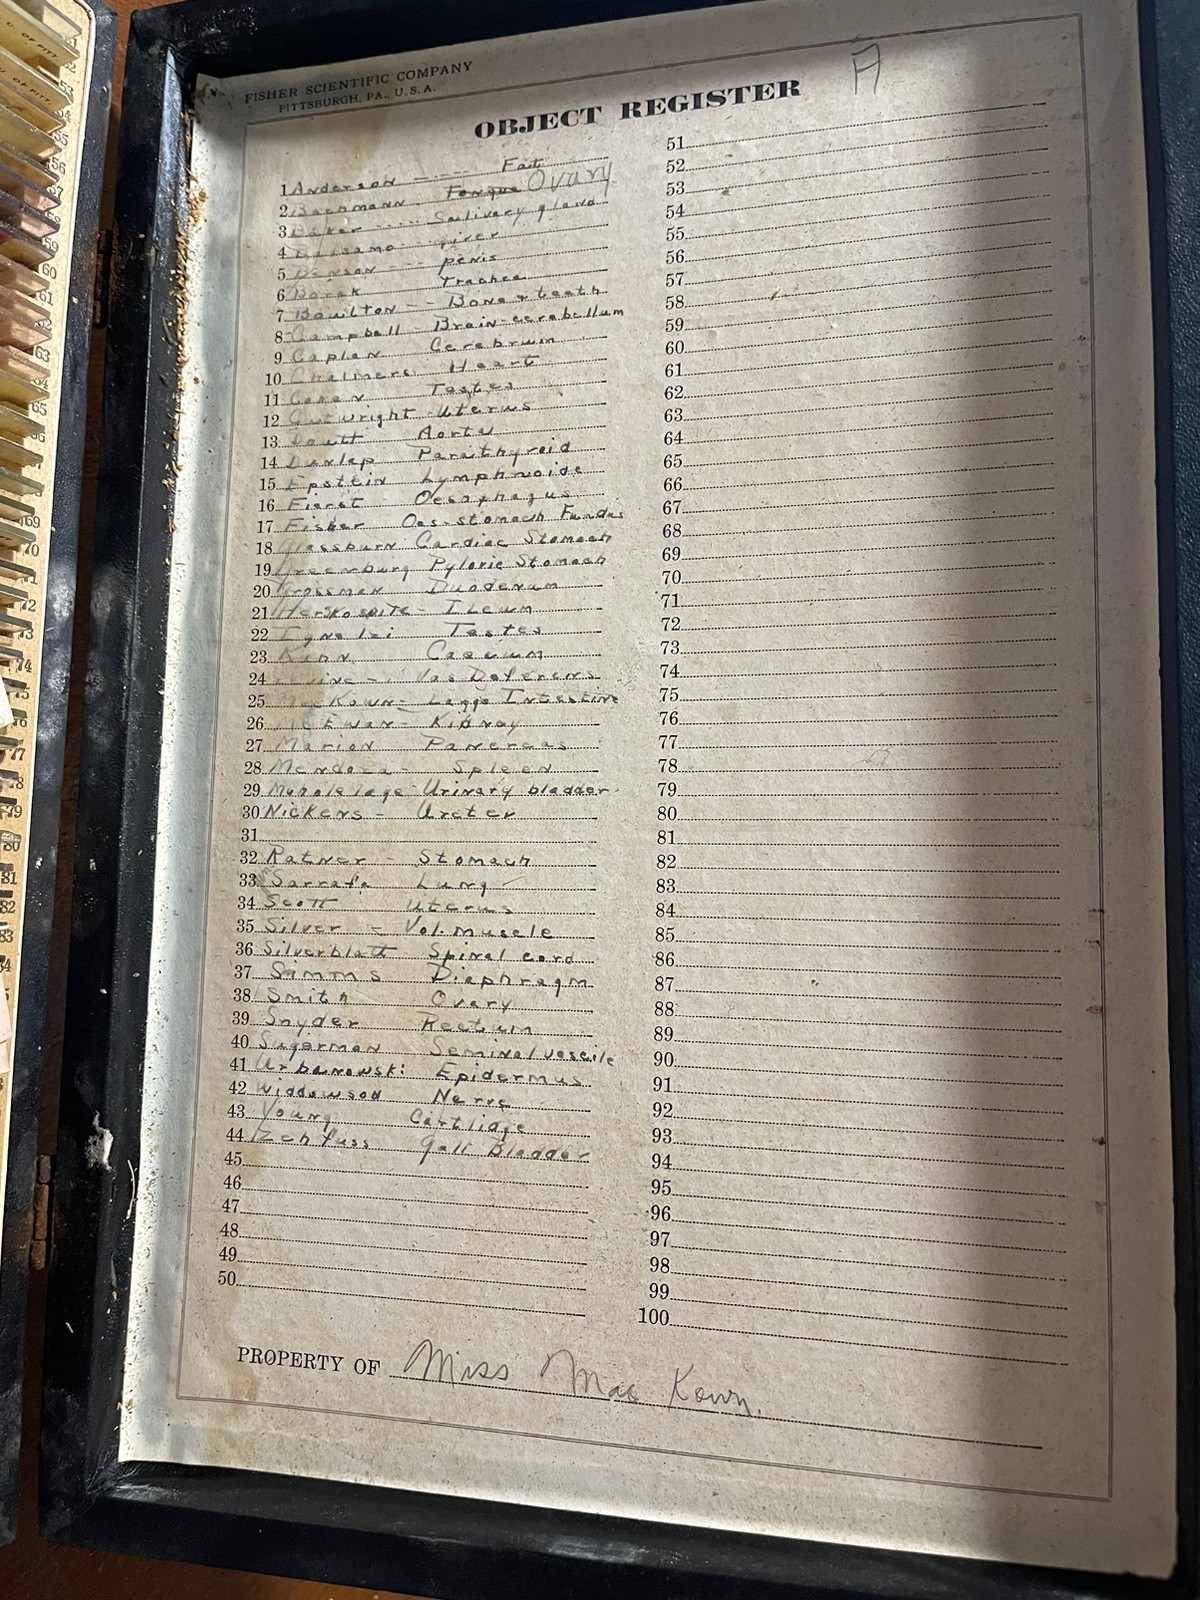 U. OF PITT
U. OF PITT
FISHER SCIENTIFIC COMPANY
PITTSBURGH, PA., U.S.A.
A
OBJECT REGISTER
1 Anderson ---- Fat
2 Bachmann. Tongue Ovary
3 Baker .... Salivary gland
4 liver
5 Benson --- penis
6 Borak Trachea
7 Boulton -- Bone & teeth
8 Campbell - Brain-cerebellum
9 Caplan Cerebrum
10 Chalmers Heart
11 Cohen Testes
12 Cutwright Uterus
13 Doutt Aorta
14 Dunlap Parathyroid
15 Epstein Lymphnoids
16 Fierst - Oesophagus
17 Fisher Oes-stomach Fundus
18 Glassburn Cardiac Stomach
19 Greenburg Pyloric Stomach
20 Grossman Duodenum
21 Herskowitz - Ileum
22 Testes
23 Kinn Caecum
24 Levine - Vas Deferens
25 MacKown - Large Intestine
26 McEwan - Kidney
27 Marion Pancreas
28 Mendoza - Spleen
29 - Urinary bladder
30 Nickens - Ureter
31
32 Ratner - Stomach
33 Sarrafa Lung
34 Scott Uterus
35 Silver - Vol. muscle
36 Silverblatt Spinal cord
37 Simms Diaphragm
38 Smith Ovary
39 Snyder Rectum
40 Sugarman Seminal vescile
41 Urbanowski Epidermus
42 Widdowson Nerve
43 Young Cartliage
44 Zehfuss Gall Bladder
45
46
47
48
49
50
51
52
53
54
55
56
57
58
59
60
61
62
63
64
65
66
67
68
69
70
71
72
73
74
75
76
77
78
79
80
81
82
83
84
85
86
87
88
89
90
91
92
93
94
95
96
97
98
99
100
PROPERTY OF Miss Mac Kown.